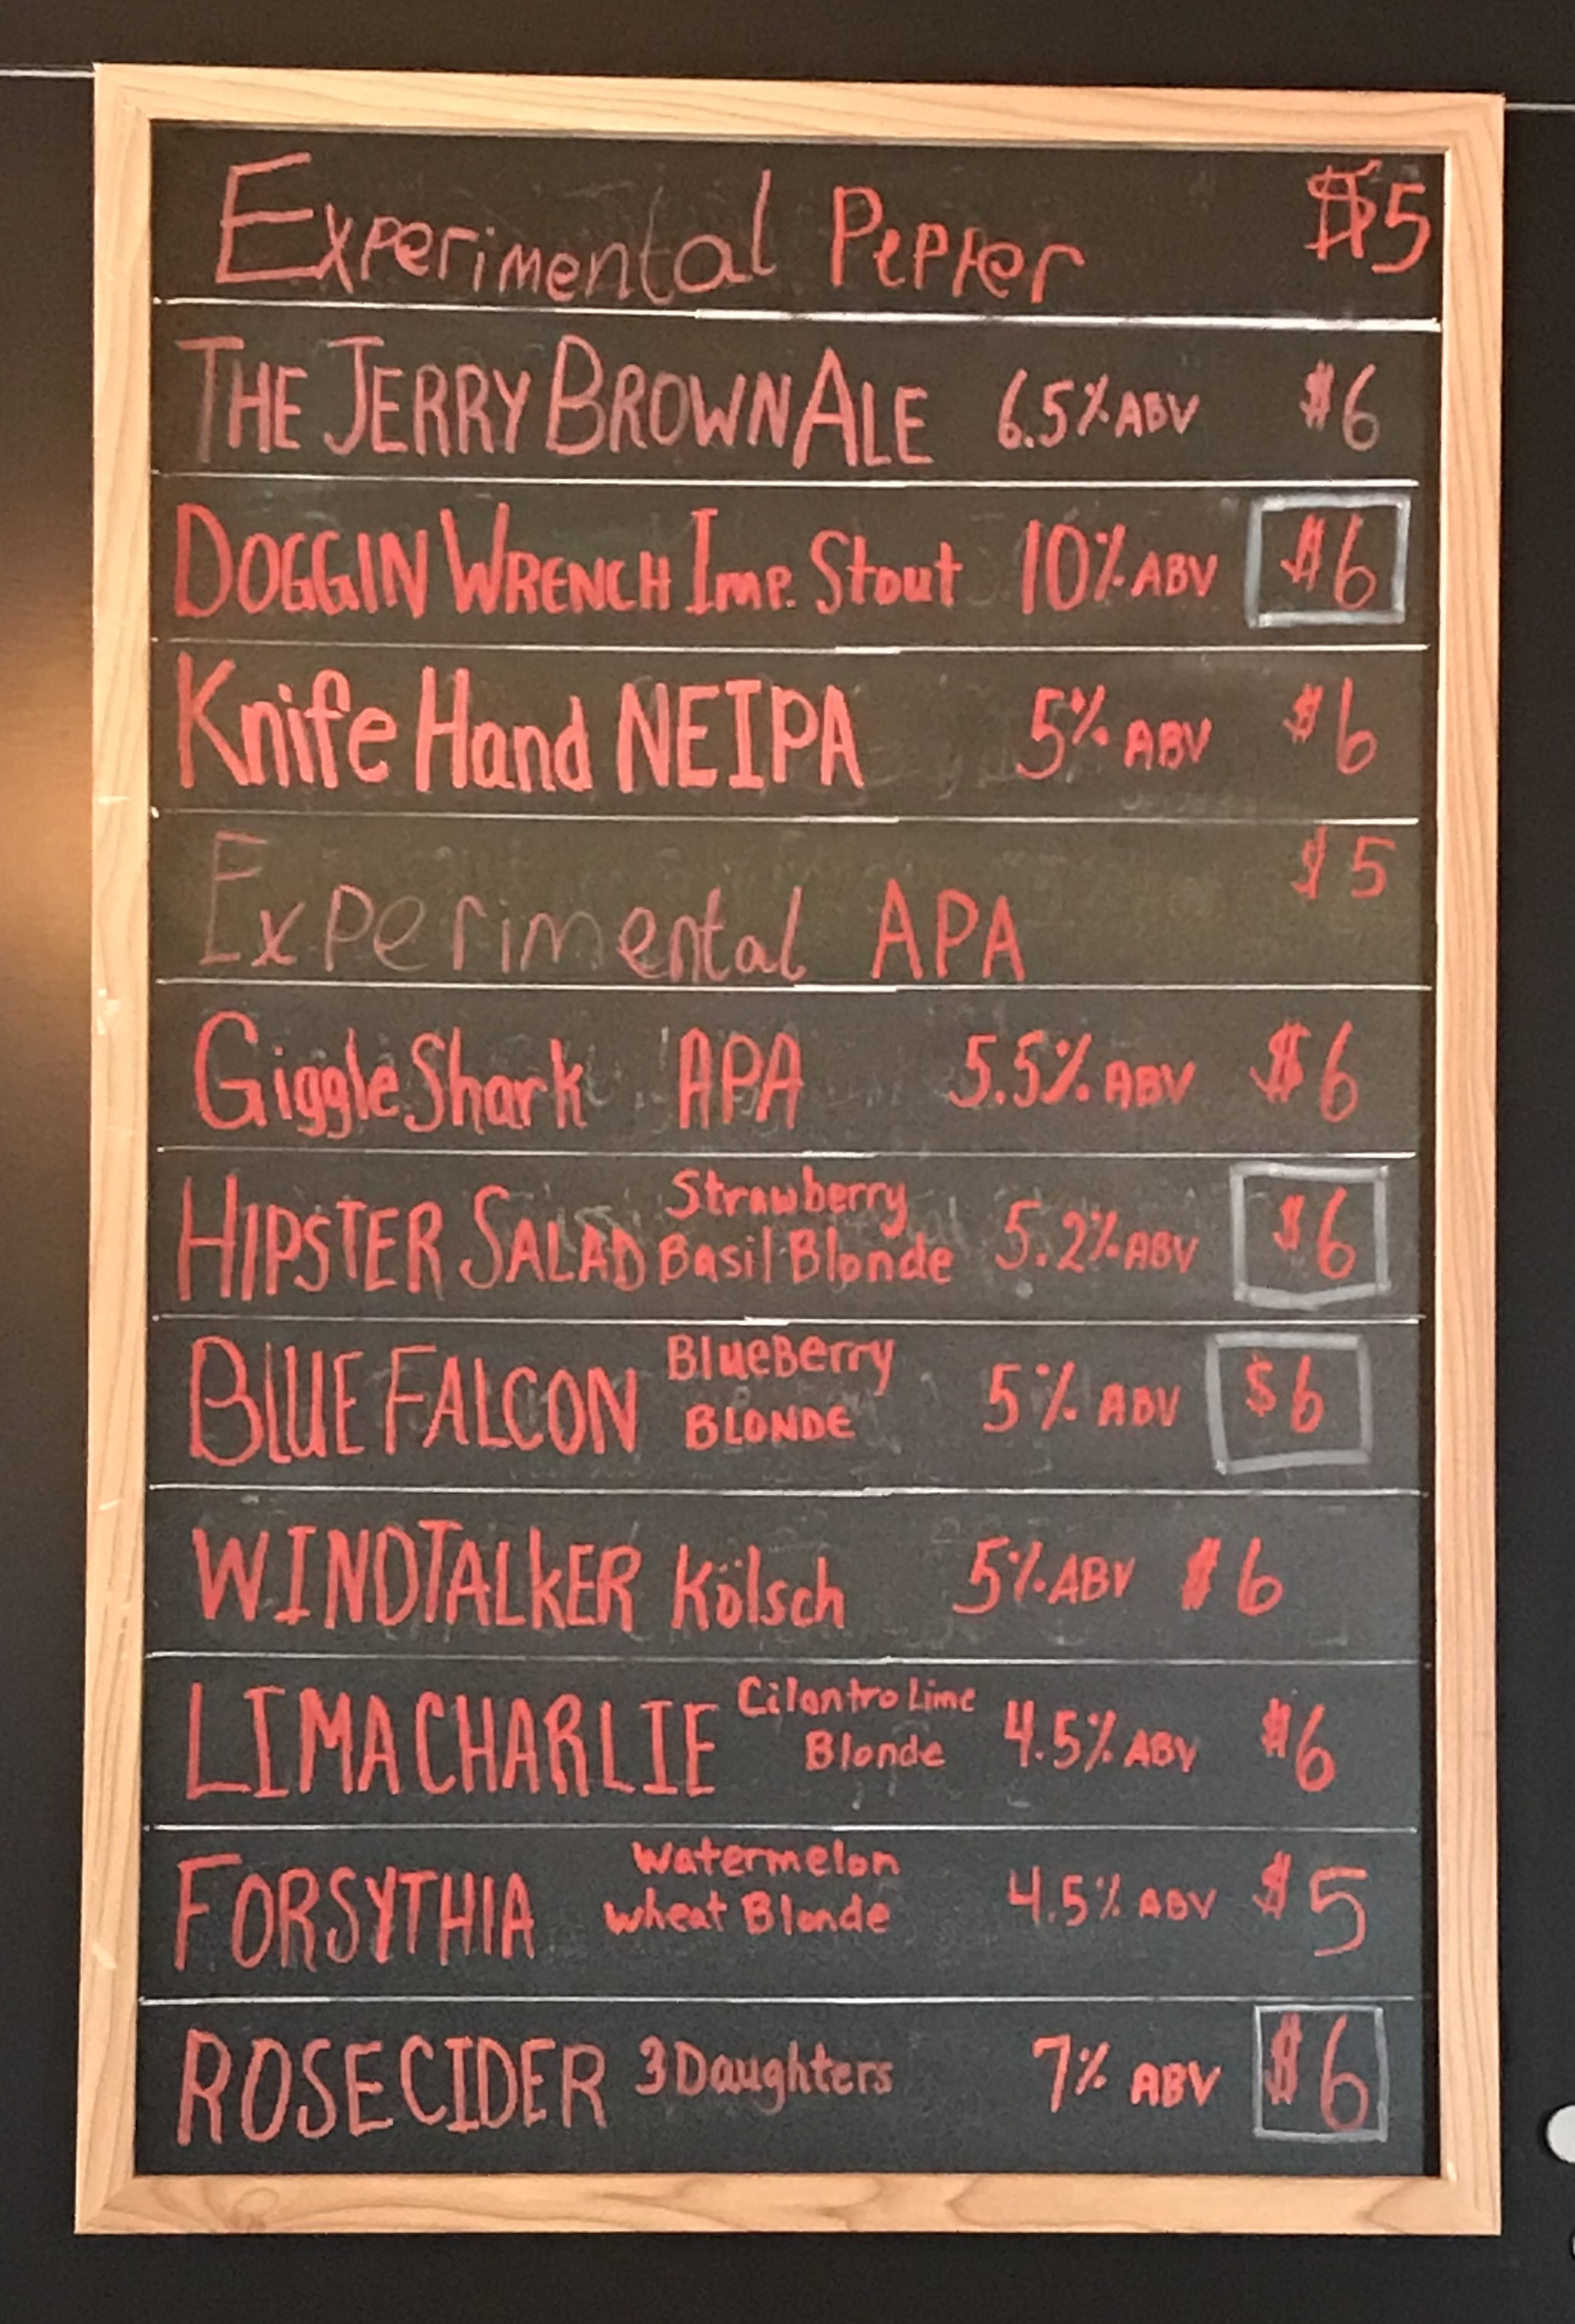 Experimental Pepper $5
THE JERRY BROWN ALE 6.5% ABV $6
DOGGIN WRENCH Imp. Stout 10% ABV $6
Knife Hand NEIPA 5% ABV $6
Experimental APA $5
Giggle Shark APA 5.5% ABV $6
HIPSTER SALAD Strawberry
Basil Blonde 5.2% ABV $6
BLUE FALCON BlueBerry
BLONDE 5% ABV $6
WINDTALKER Kölsch 5% ABV $6
LIMA CHARLIE Cilantro Lime
Blonde 4.5% ABV $6
FORSYTHIA Watermelon
Wheat Blonde 4.5% ABV $5
ROSE CIDER 3 Daughters 7% ABV $6